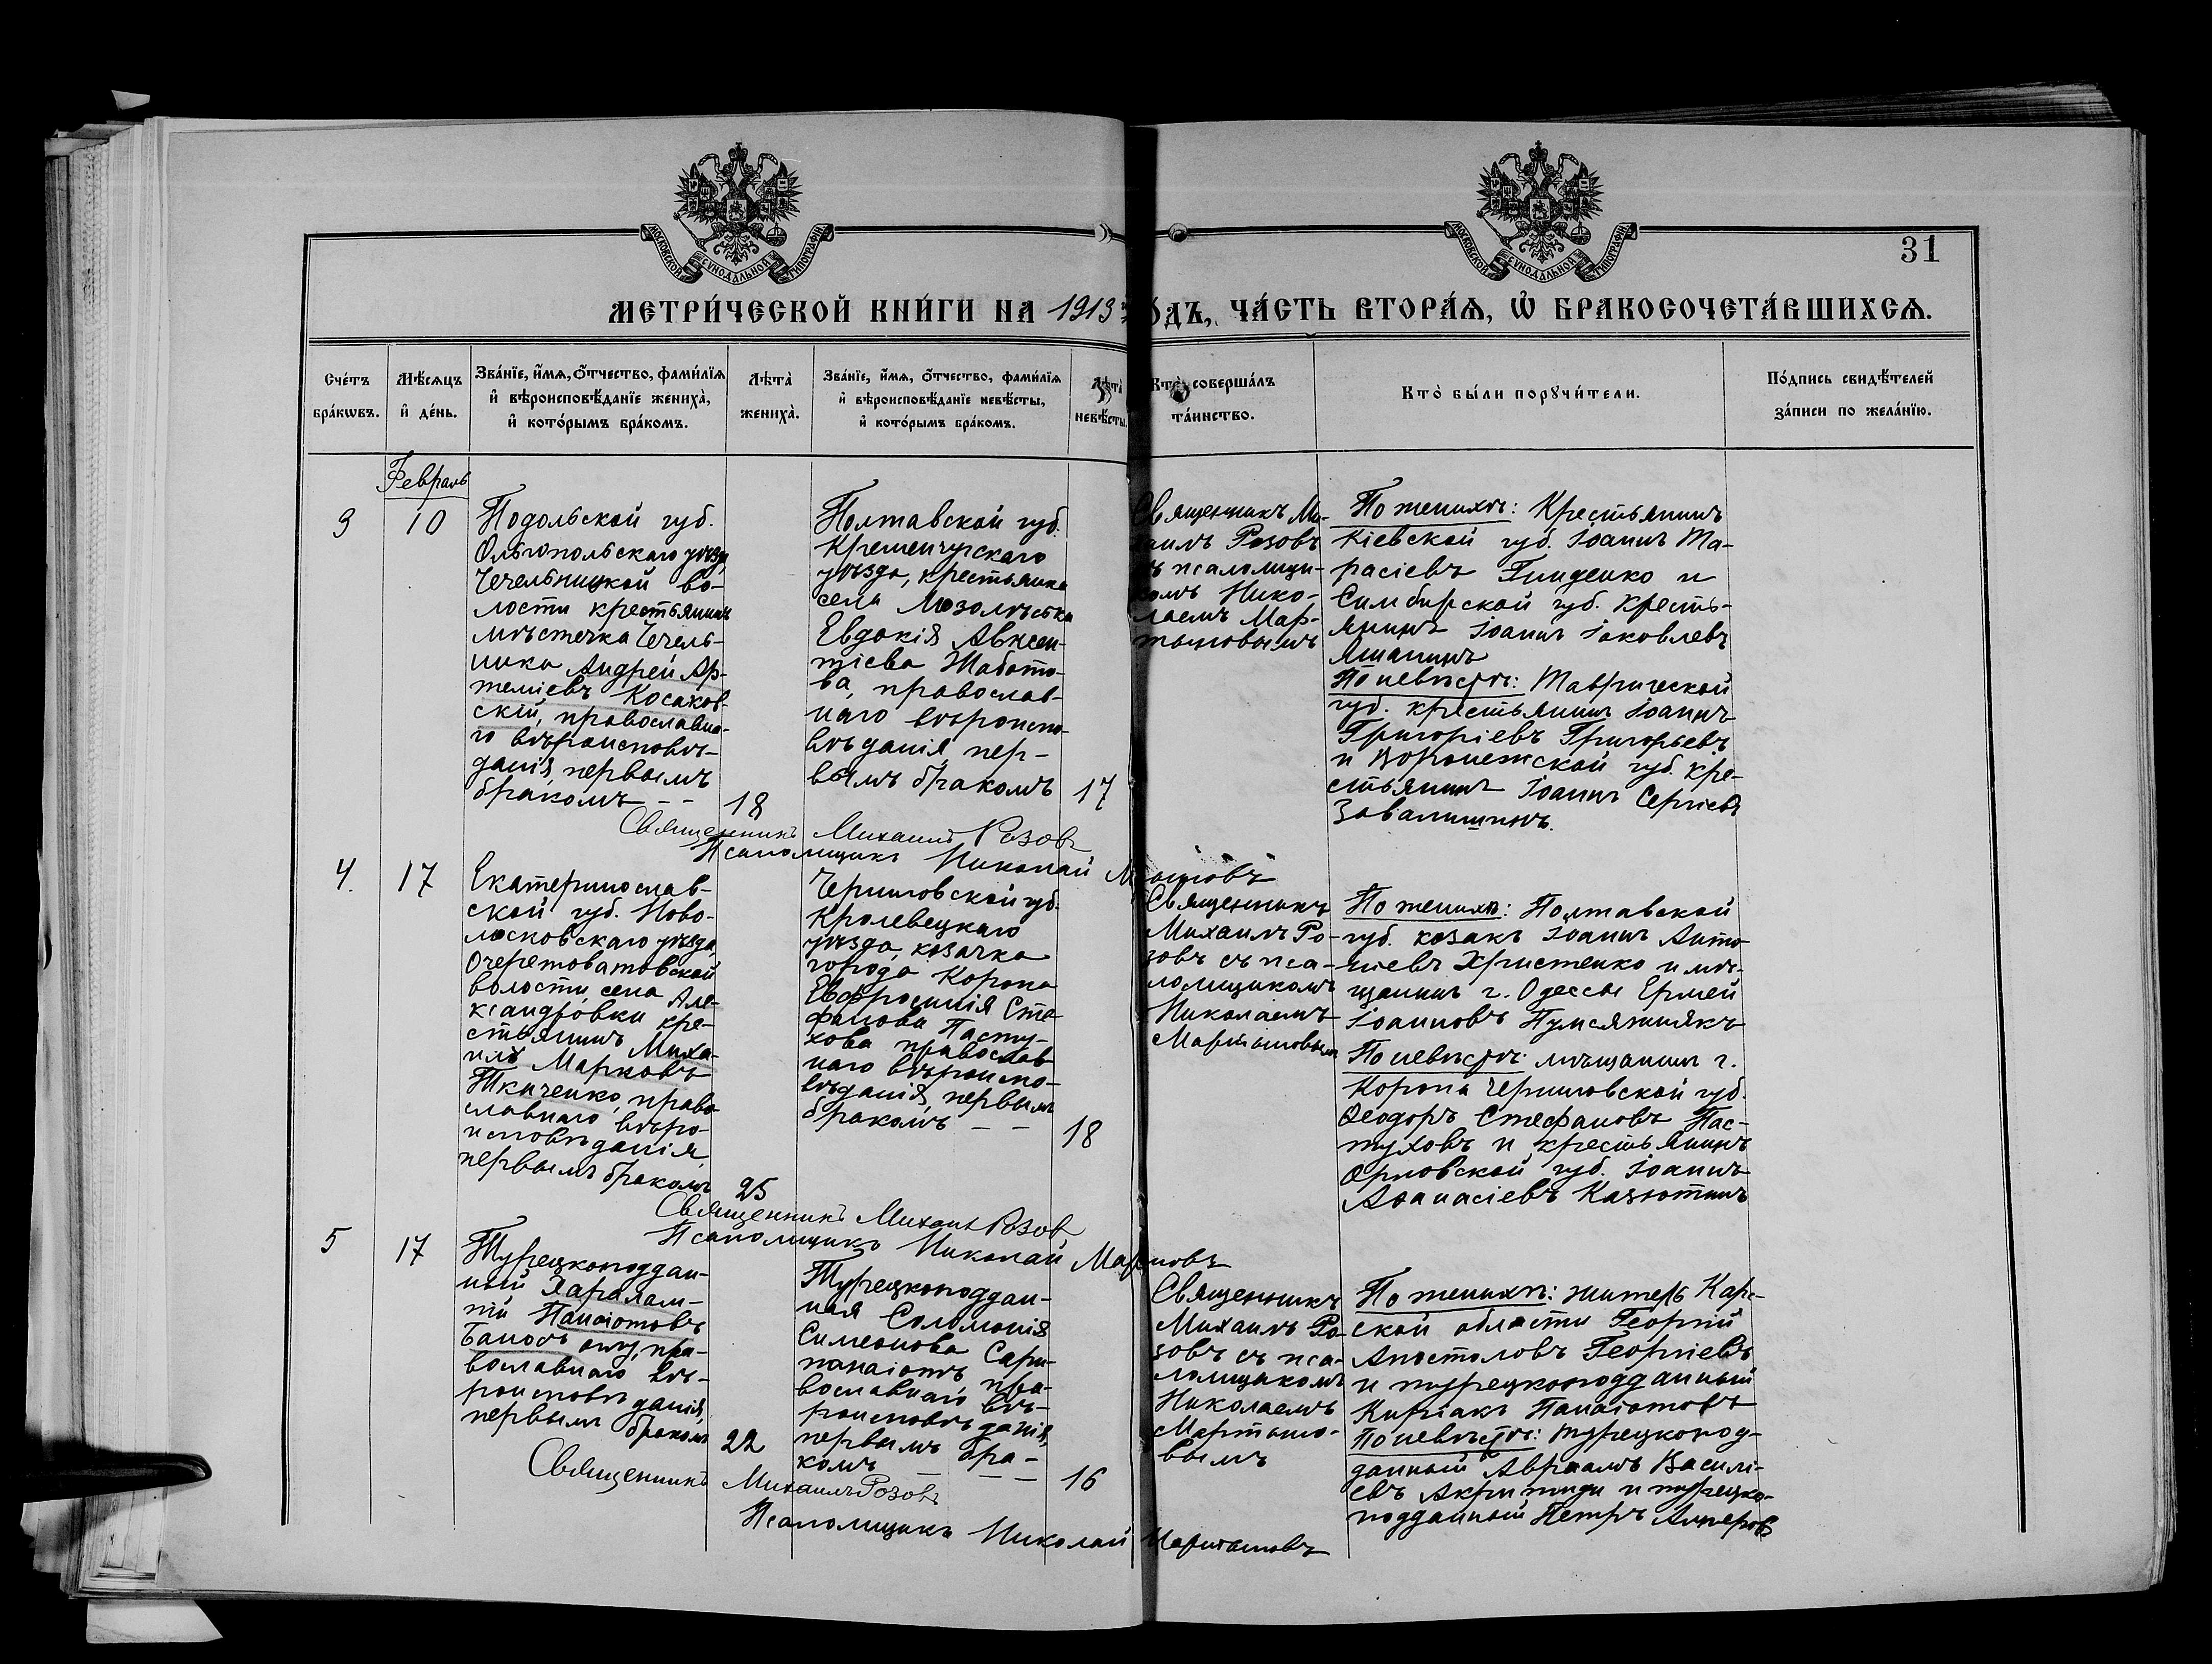 МОСКОВСКОЙ СѴНОДАЛЬНОЙ ТИПОГРАФІИ
МОСКОВСКОЙ СѴНОДАЛЬНОЙ ТИПОГРАФІИ
31
МЕТРИ́ЧЕСКОЙ КНИ́ГИ НА 1913 ГО́ДЪ, ЧА́СТЬ ВТОРА́Ѧ, Ѽ БРАКОСОЧЕТА́ВШИХСѦ.
Сче́тъ
бра́кѡвъ.
Мѣ́сѧцъ
и҆ де́нь.
Зва́нїе, и҆́мѧ, ѻ҆́тчество, фами́лїѧ
и҆ вѣроисповѣ́данїе жениха̀,
и҆ кото́рымъ бра́комъ.
Лѣта̀
жениха̀.
Зва́нїе, и҆́мѧ, ѻ҆́тчество, фами́лїѧ
и҆ вѣроисповѣ́данїе невѣ́сты,
и҆ кото́рымъ бра́комъ.
Лѣта̀
невѣ́сты.
Кто̀ соверша́лъ
та́инство.
Кто̀ бы́ли порꙋчи́тели.
По́дпись свидѣ́телей
за́писи по жела́нїю.
Февраль
3
10
Подольской губ.
Ольгопольскаго уѣзда,
Чечельницкой во-
лости крестьянинъ
мѣстечка Чечель-
ника Андрей Ар-
теміевъ Косаков-
скій, православна-
го вѣроисповѣ-
данія, первымъ
бракомъ - -
18
Полтавской губ.
Кременчугскаго
уѣзда, крестьянка
села Мозолѣевка
Евдокія Авксен-
тіева Жабото-
ва, православ-
наго вѣроиспо-
вѣданія, пер-
вымъ бракомъ
17
Священникъ Ми-
хаилъ Розовъ
съ псаломщи-
комъ Нико-
лаемъ Мар-
тыновымъ
По женихѣ: Крестьянинъ
Кіевской губ. Іоаннъ Та-
расіевъ Гниденко и
Симбирской губ. кресть-
янинъ Іоаннъ Іаковлевъ
Яшанинъ
По невѣстѣ: Таврической
губ. крестьянинъ Іоаннъ
Григоріевъ Григорьевъ
и Воронежской губ. кре-
стьянинъ Іоаннъ Сергіевъ
Завалишинъ.
Священникъ Михаилъ Розовъ
Псаломщикъ Николай Мартыновъ
4.
17
Екатеринослав-
ской губ. Ново-
московскаго уѣзда,
Очеретоватовской
волости, села Але-
ксандровки кре-
стьянинъ Миха-
илъ Марковъ
Ткаченко, право-
славнаго вѣро-
исповѣданія,
первымъ бракомъ
25
Черниговской губ.
Кролевецкаго
уѣзда, козачка
города Коропа
Евфросинія Сте-
фанова Пасту-
хова православ-
наго вѣроиспо-
вѣданія, первымъ
бракомъ - -
18
Священникъ
Михаилъ Ро-
зовъ съ пса-
ломщикомъ
Николаемъ
Мартыновымъ
По женихѣ: Полтавской
губ. козакъ Іоаннъ Анто-
ніевъ Христенко и мѣ-
щанинъ г. Одессы Ермей
Іоанновъ
По невѣстѣ: мѣщанинъ г.
Коропа Черниговской губ.
Ѳеодоръ Стефановъ Пас-
туховъ и крестьянинъ
Орловской губ. Іоаннъ
Аѳанасіевъ Казютинъ
Священникъ Михаилъ Розовъ
Псаломщикъ Николай Мартыновъ
5
17
Турецкоподдан-
ный Харалам-
пій Панаіотовъ
Баносъ оглу, пра-
вославнаго вѣ-
роисповѣданія,
первымъ бракомъ
22
Турецкоподдан-
ная Соломонія
Симеонова Сари-
панаіотъ пра-
вославнаго вѣ-
роисповѣданія,
первымъ бра-
комъ - - -
16
Священникъ
Михаилъ Ро-
зовъ съ пса-
ломщикомъ
Николаемъ
Мартыно-
вымъ
По женихѣ: житель Кар-
ской области Георгій
Апостоловъ Георгіевъ
и турецкоподданный
Киріакъ Панаіотовъ
По невѣстѣ: турецкопод-
данный Авраамъ Василі-
евъ Акритиди и турецко-
подданный Петръ
Священникъ Михаилъ Розовъ
Псаломщикъ Николай Мартыновъ